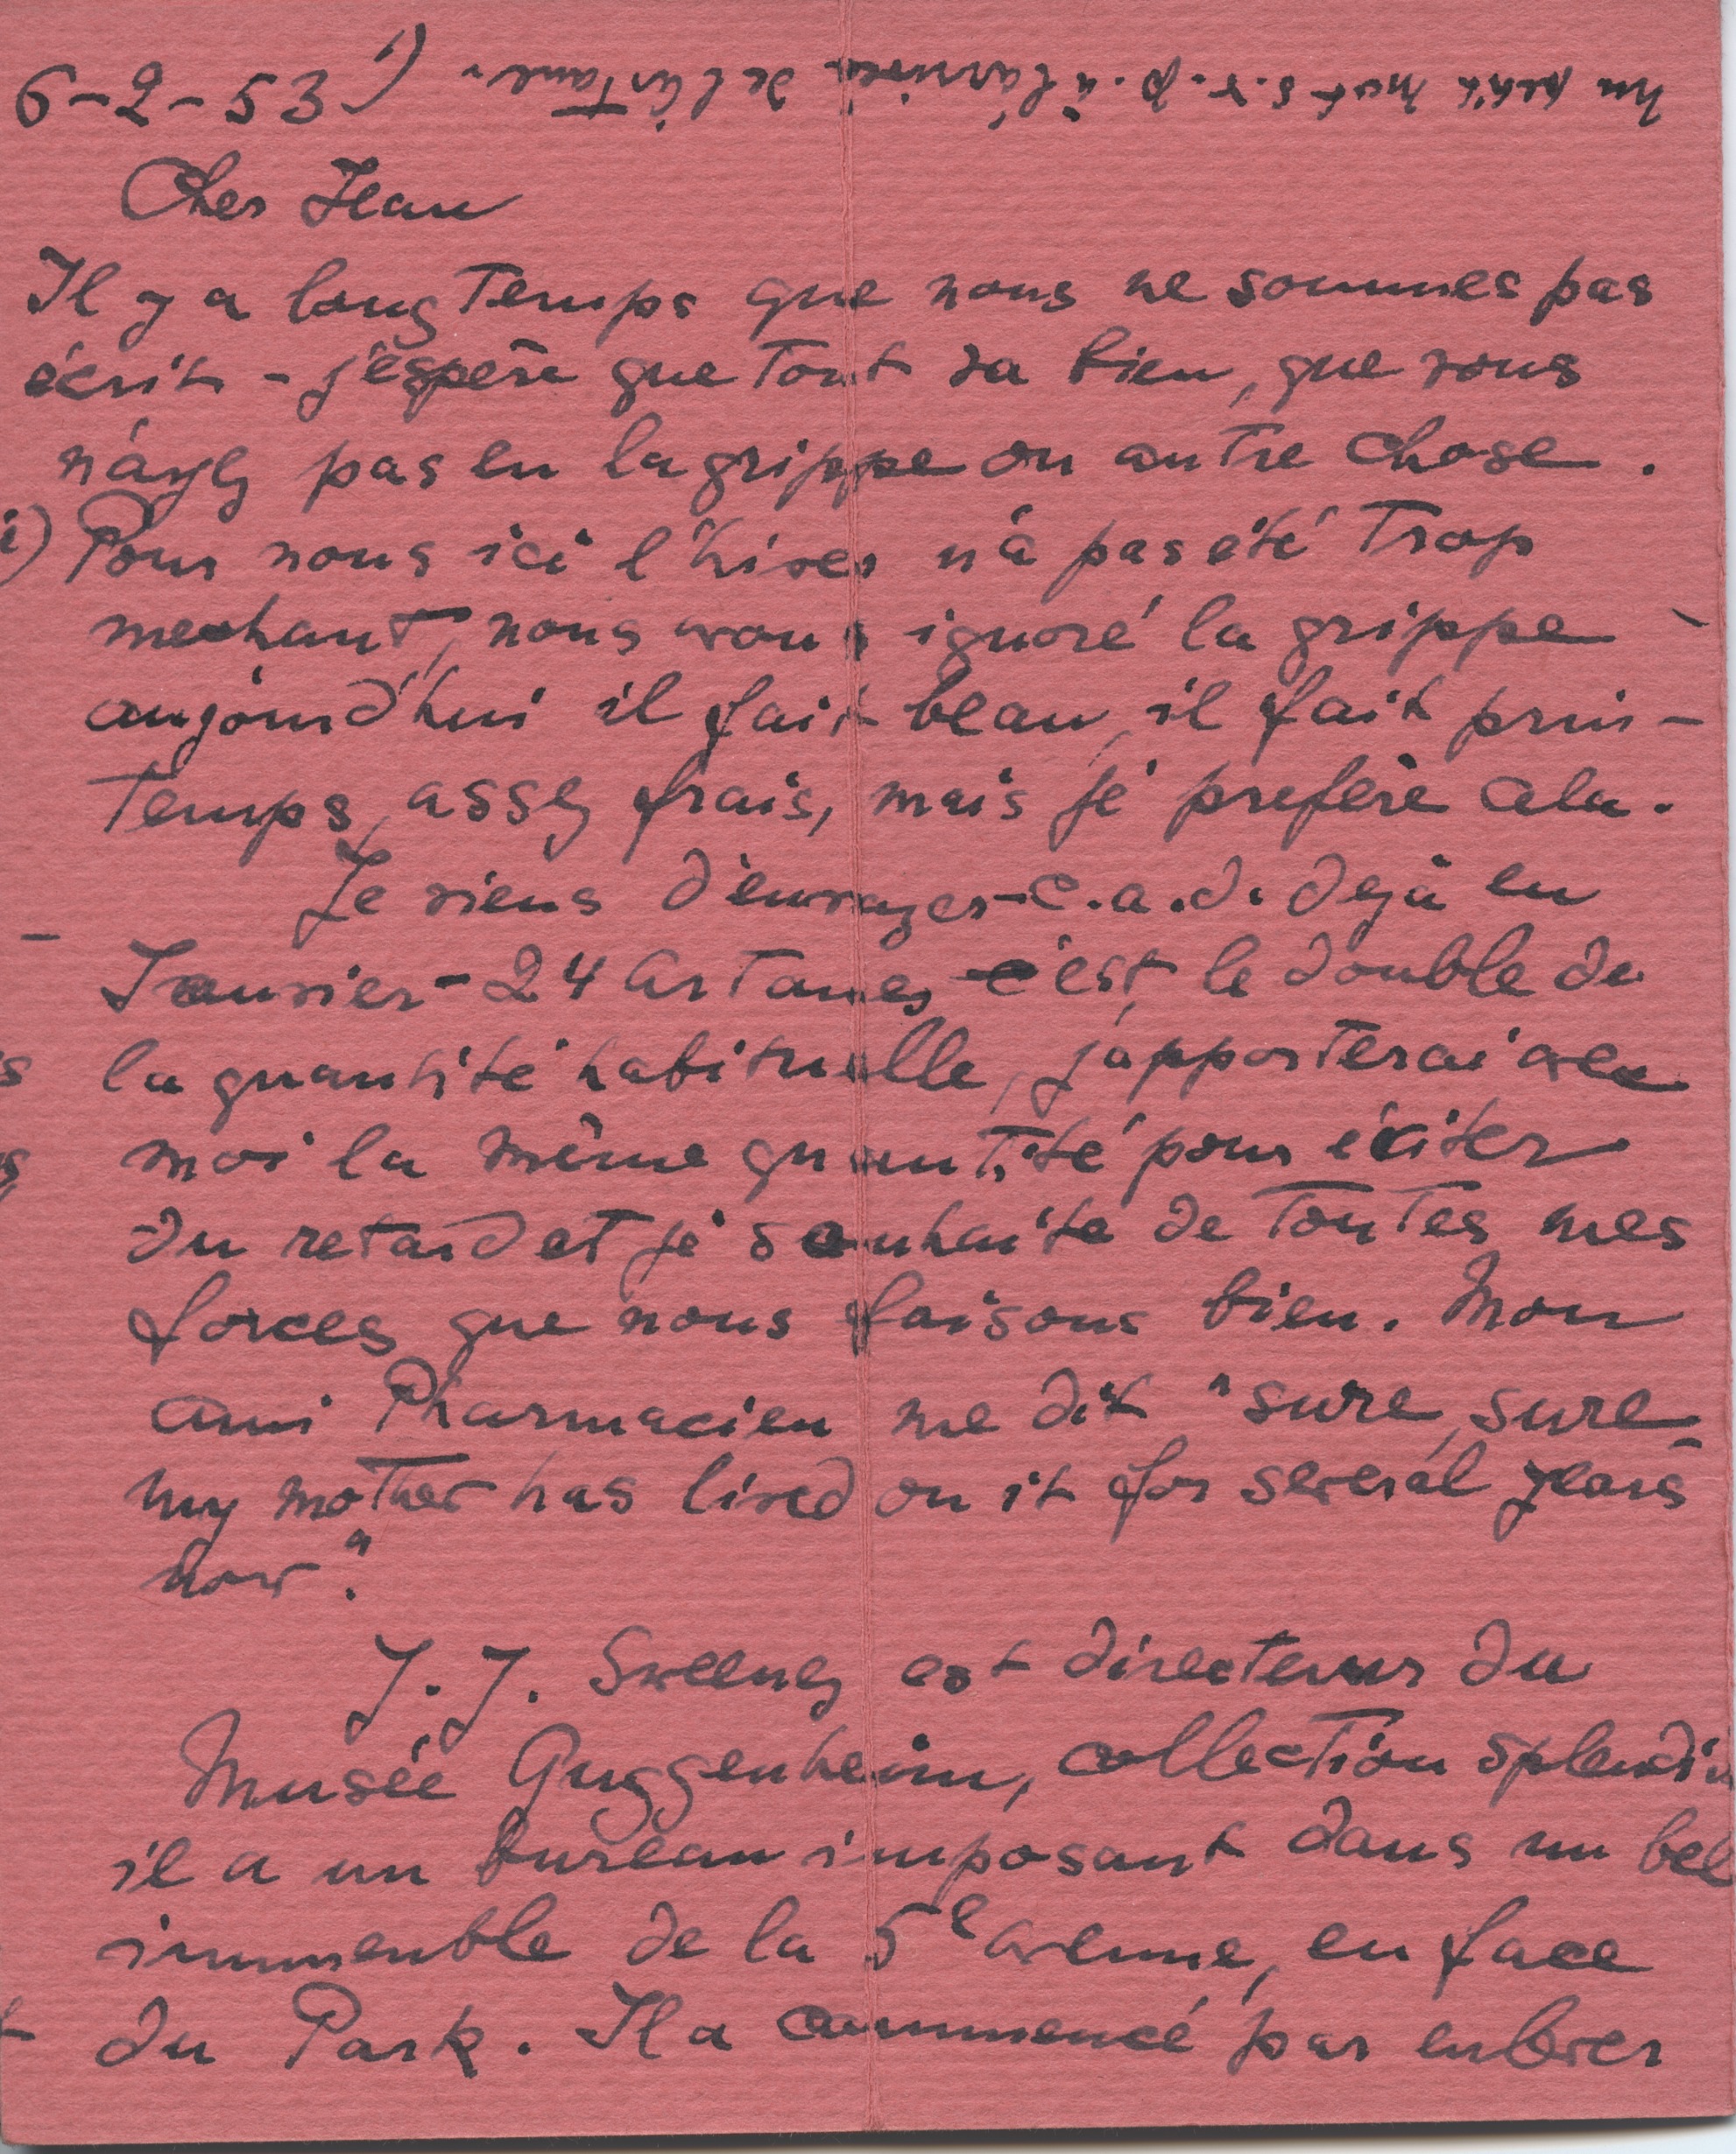 6-2-53 1)
un petit mot s.v.p. à l'arrivée de l'Artane.
Cher Jean
Il y a longtemps que nous ne sommes pas
écrit - j'éspère que tout va bien, que vous
n'ayez pas eu la grippe ou autre chose.
Pour nous ici l'hiver n'a pas été trop
mechant, nous avons ignoré la grippe
aujourd'hui il fait beau, il fait prin-
temps, assez frais, mais je prefère cela.
Je viens d'envoyer - c.a.d. dejà en
Janvier - 24 Artanes, c'est le double de
la quantité habituelle, j'apporterai avec
moi la même quantité pour éviter
du retard et je souhaite de toutes mes
forces que nous faisons bien. Mon
ami Pharmacien me dit "sure, sure
my mother has lived on it for several years
now."
J. J. Sweeney est directeur du
Musée Guggenheim, collection splendi
il a un bureau imposant dans un bel
immeuble de la 5e avenue, en face
du Park. Il a commencé par enlever